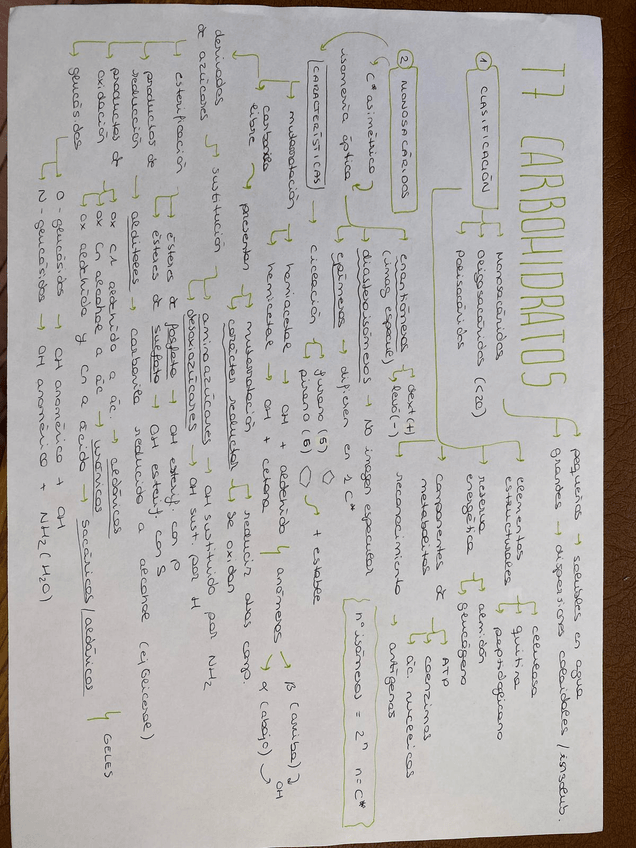 T7 CARBOHIDRATOS
pequeños → solubles en agua
grandes → dispersiones coloidales / insolub.
① CLASIFICACIÓN
Monosacáridos
Oligosacáridos (<20)
Polisacáridos
elementos estructurales
celulosa
quitina
peptidoglicano
reserva energética
almidón
glucógeno
componentes de metabolitos
ATP
coenzimas
ác. nucleicos
reconocimiento → antígenos
② MONOSACÁRIDOS
C* asimétrico
isomería óptica
enantiómeros (imag especular)
dext (+)
levó (-)
diastereoisómeros → No imagen especular
epímeros → difieren en 1 C*
nº isómeros = 2ⁿ n = C*
CARACTERÍSTICAS → ciclación
furano (5)
pirano (6)
+ estable
mutarrotación
hemiacetal → OH + aldehído
hemicetal → OH + cetona
anómeros
β (arriba)
α (abajo)
OH
carbonilo libre → presentan
mutarrotación
carácter reductor
reducir otros comp.
se oxidan
derivados de azúcares
sustitución
aminoazúcares → OH sustituido por NH2
desoxiazúcares → OH sust. por H
esterificación
ésteres de fosfato → OH esterif. con P
ésteres de sulfato → OH esterif. con S
productos de reducción → alditoles → carbonilo reducido a alcohol (ej Glicerol)
productos de oxidación
ox Cn aldehído a ác. → aldónicos
ox Cn alcohol a ác → urónicos
ox aldehído y Cn a ácido → sacáricos / aldáricos
GELES
glucósidos
O-glucósidos → OH anomérico + OH
N-glucósidos → OH anomérico + NH2 (H2O)